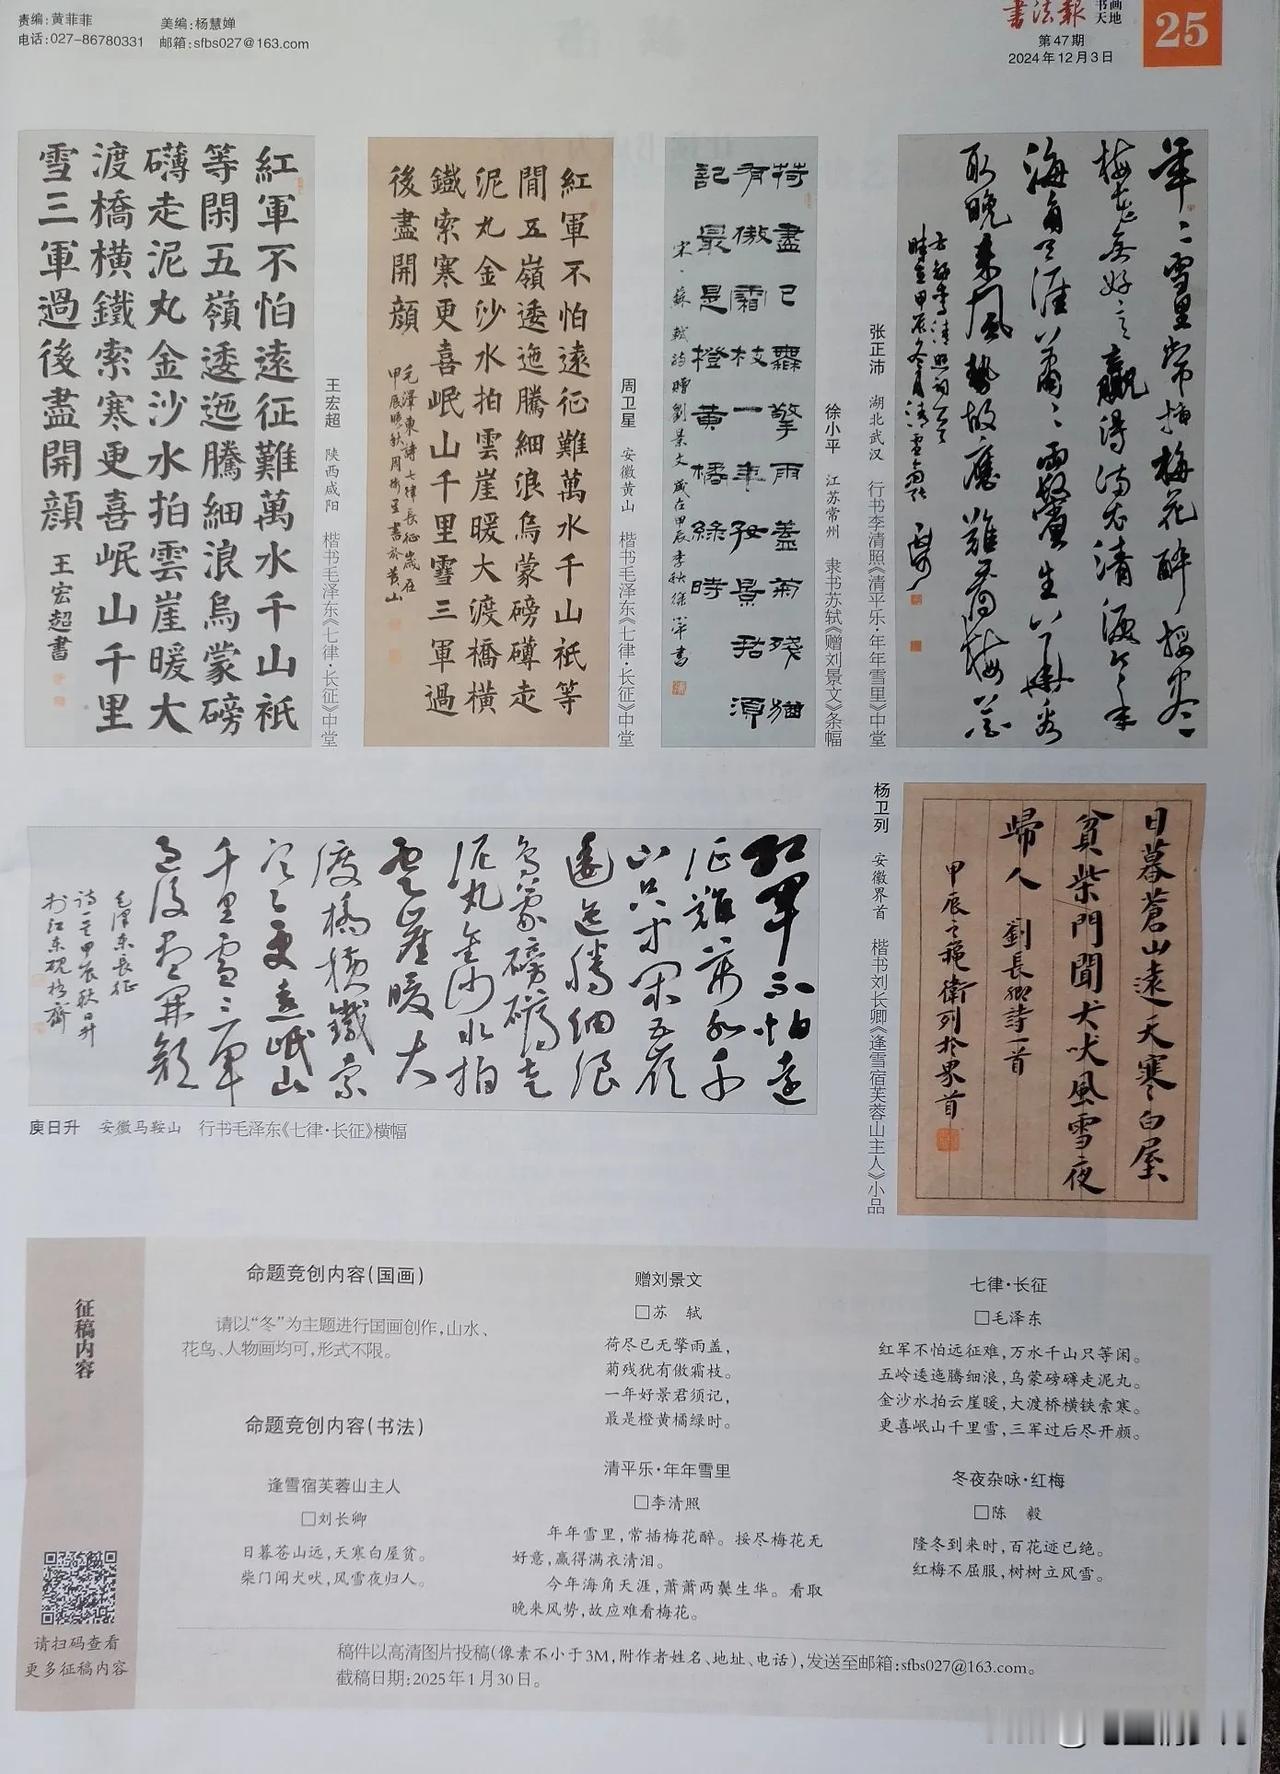 责编:黄菲菲 美编:杨慧婵
电话:027-86780331 邮箱:sfbs027@163.com
书法报 书画天地
第47期
2024年12月3日
25
年二雪里常插梅花醉挼尽
梅花无好意赢得满衣清泪今年
海角天涯萧萧两鬓生华看
取晚来风势故应难看梅花
张正沛 湖北武汉 行书李清照《清平乐·年年雪里》中堂
荷盡已無擎雨蓋菊殘猶
有傲霜枝一年好景君須
記最是橙黄橘綠時
宋·蘇軾詩贈劉景文歲在甲辰季秋徐小平書
徐小平 江苏常州 隶书苏轼《赠刘景文》条幅
紅軍不怕遠征難萬水千山祇等
閒五嶺逶迤騰細浪烏蒙磅礴走
泥丸金沙水拍雲崖暖大渡橋橫
鐵索寒更喜岷山千里雪三軍過
後盡開顔
毛澤東詩七律長征歲在
甲辰晚秋周衛星書於黄山
周卫星 安徽黄山 楷书毛泽东《七律·长征》中堂
紅軍不怕遠征難萬水千山祇
等閑五嶺逶迤騰細浪烏蒙磅
礴走泥丸金沙水拍雲崖暖大
渡橋橫鐵索寒更喜岷山千里
雪三軍過後盡開顔
王宏超書
王宏超 陕西咸阳 楷书毛泽东《七律·长征》中堂
日暮蒼山遠天寒白屋
貧柴門聞犬吠風雪夜
歸人 劉長卿詩一首
甲辰之龝衛列於界首
杨卫列 安徽界首 楷书刘长卿《逢雪宿芙蓉山主人》小品
红军不怕远
征难万水千
山只等闲五岭
逶迤腾细浪
乌蒙磅礴走
泥丸金沙水拍
云崖暖大
渡桥横铁索
寒更喜岷山
千里雪三军
过后尽开颜
毛泽东长征
诗一首甲辰秋日升
庾日升 安徽马鞍山 行书毛泽东《七律·长征》横幅
征稿内容
请扫码查看
更多征稿内容
命题竞创内容(国画)
请以“冬”为主题进行国画创作,山水、
花鸟、人物画均可,形式不限。
命题竞创内容(书法)
逢雪宿芙蓉山主人
□刘长卿
日暮苍山远,天寒白屋贫。
柴门闻犬吠,风雪夜归人。
赠刘景文
□苏 轼
荷尽已无擎雨盖,
菊残犹有傲霜枝。
一年好景君须记,
最是橙黄橘绿时。
清平乐·年年雪里
□李清照
年年雪里,常插梅花醉。挼尽梅花无
好意,赢得满衣清泪。
今年海角天涯,萧萧两鬓生华。看取
晚来风势,故应难看梅花。
七律·长征
□毛泽东
红军不怕远征难,万水千山只等闲。
五岭逶迤腾细浪,乌蒙磅礴走泥丸。
金沙水拍云崖暖,大渡桥横铁索寒。
更喜岷山千里雪,三军过后尽开颜。
冬夜杂咏·红梅
□陈 毅
隆冬到来时,百花迹已绝。
红梅不屈服,树树立风雪。
稿件以高清图片投稿(像素不小于3M,附作者姓名、地址、电话),发送至邮箱:sfbs027@163.com。
截稿日期:2025年1月30日。